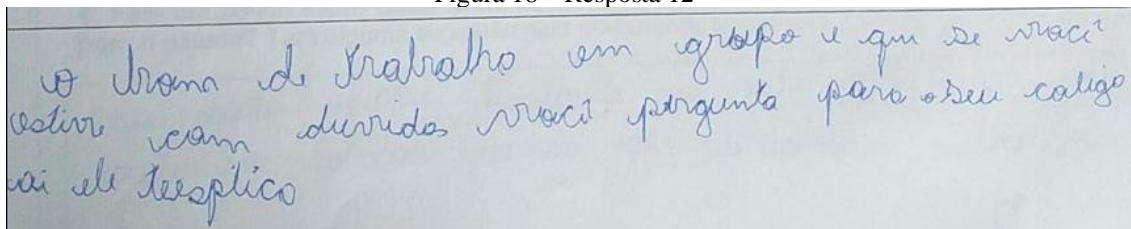 Figura 18 – Resposta 12
o brom de trabalho em grupo e que se você
estive com duvidas você pergunta para o seu coligo
ai ele teesplico